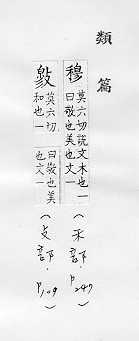 類篇
穆 莫六切說文木也一
曰敬也美也文一
(禾部.P249)
敦 莫六切
和也一
曰敬也美
也文一
(攴部.P109)